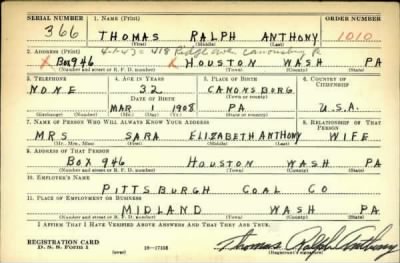 SERIAL NUMBER 1. NAME (Print) ORDER NUMBER
366 THOMAS RALPH ANTHONY 1010
(First) (Middle) (Last)
2. ADDRESS (Print) 4-1-43 = 418 Ridge Ave Canonsburg
X Box 946 X HOUSTON WASH PA
(Number and street or R. F. D. number) (Town) (County) (State)
3. TELEPHONE 4. AGE IN YEARS 5. PLACE OF BIRTH 6. COUNTRY OF CITIZENSHIP
NONE 32 CANONSBURG
DATE OF BIRTH (Town or county)
MAR 1 1908 PA U.S.A.
(Exchange) (Number) (Mo.) (Day) (Yr.) (State or country)
7. NAME OF PERSON WHO WILL ALWAYS KNOW YOUR ADDRESS 8. RELATIONSHIP OF THAT PERSON
MRS SARA ELIZABETH ANTHONY WIFE
(Mr., Mrs., Miss) (First) (Middle) (Last)
9. ADDRESS OF THAT PERSON
BOX 946 HOUSTON WASH PA
(Number and street or R. F. D. number) (Town) (County) (State)
10. EMPLOYER'S NAME
PITTSBURGH COAL CO
11. PLACE OF EMPLOYMENT OR BUSINESS
MIDLAND WASH PA
(Number and street or R. F. D. number) (Town) (County) (State)
I AFFIRM THAT I HAVE VERIFIED ABOVE ANSWERS AND THAT THEY ARE TRUE.
REGISTRATION CARD
D. S. S. Form 1 (over) 16—17105 Thomas Ralph Anthony
(Registrant's signature)